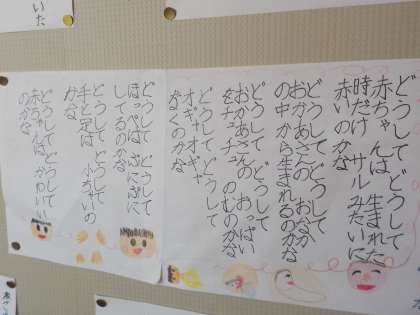 どうして どうして
赤ちゃんは 生まれた
時だけ サルみたいに
赤いのかな
どうして どうして
おかあさんの おなか
の中から生まれるのかな
どうして どうして
おかあさんの おっぱい
をチュチュ のむのかな
どうして どうして
オギャオギャ
なくのかな
どうして どうして
ほっぺは ぷにぷに
してるのかな
どうして どうして
手と足は 小さいの
かな
どうして どうして
赤ちゃんは かわいい
のかな